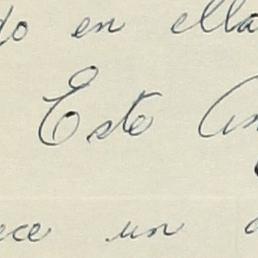 do en ella
Este
ece un